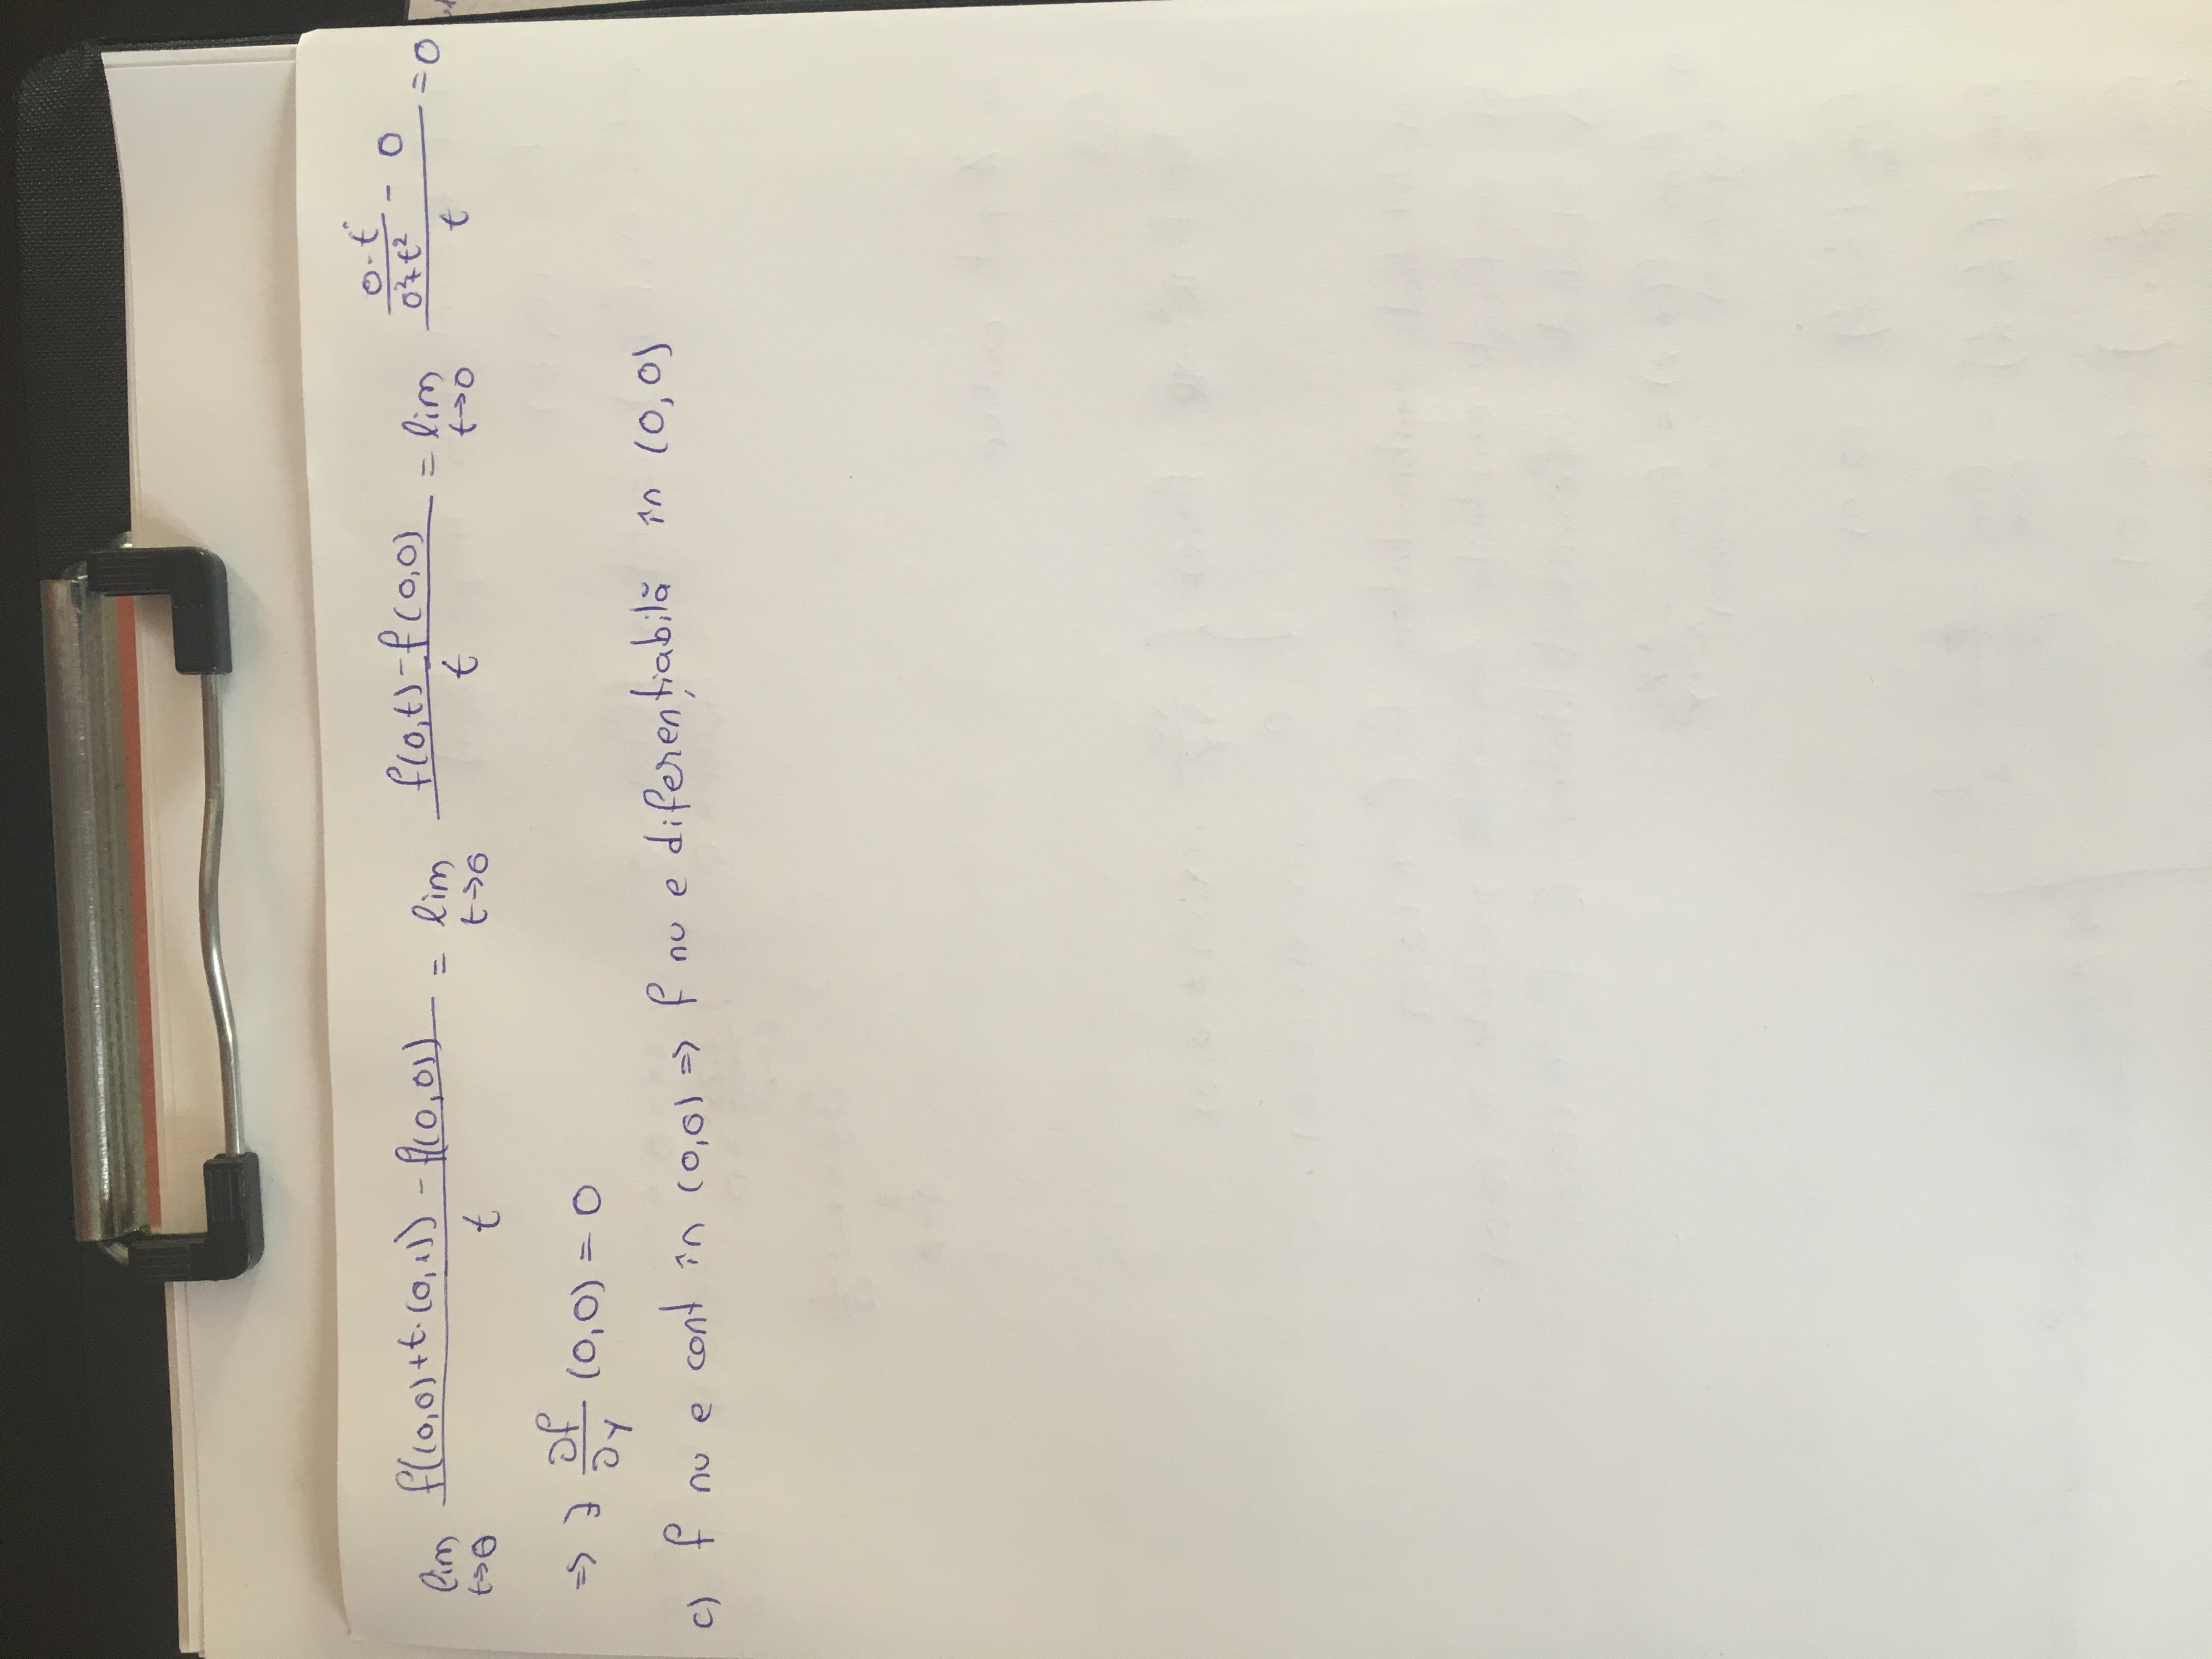 lim t→0 f((0,0)+t·(0,1)) - f((0,0)) / t = lim t→0 f(0,t) - f(0,0) / t = lim t→0 (0·t / 0²+t² - 0) / t = 0
⇒ ∃ ∂f/∂y (0,0) = 0
c) f nu e cont în (0,0) ⇒ f nu e diferențiabilă în (0,0)